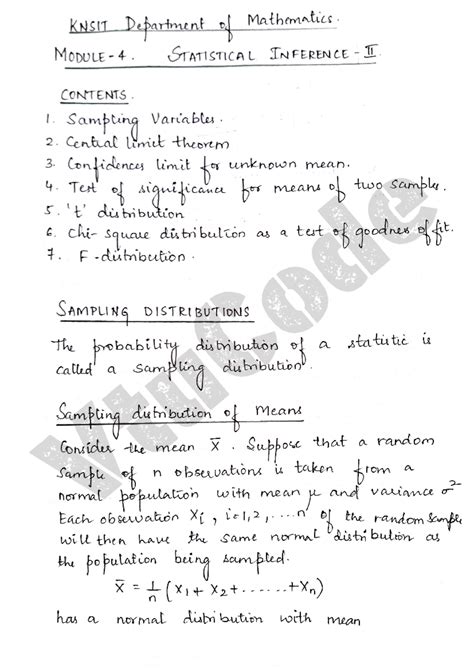 KNSIT Department of Mathematics.
MODULE-4. STATISTICAL INFERENCE-II
CONTENTS.
1. Sampling Variables.
2. Central limit theorem
3. Confidences limit for unknown mean.
4. Test of significance for means of two samples.
5. 't' distribution
6. Chi-square distribution as a test of goodness of fit.
7. F-distribution.
SAMPLING DISTRIBUTIONS
The probability distribution of a statistic is
called a sampling distribution.
Sampling distribution of Means
Consider the mean X̄. Suppose that a random
sample of n observations is taken from a
normal population with mean μ and variance σ²
Each observation Xi, i=1,2,....n of the random sample
will then have the same normal distribution as
the population being sampled.
X̄ = 1/n (X1 + X2 + ...... + Xn)
has a normal distribution with mean
VtuCode